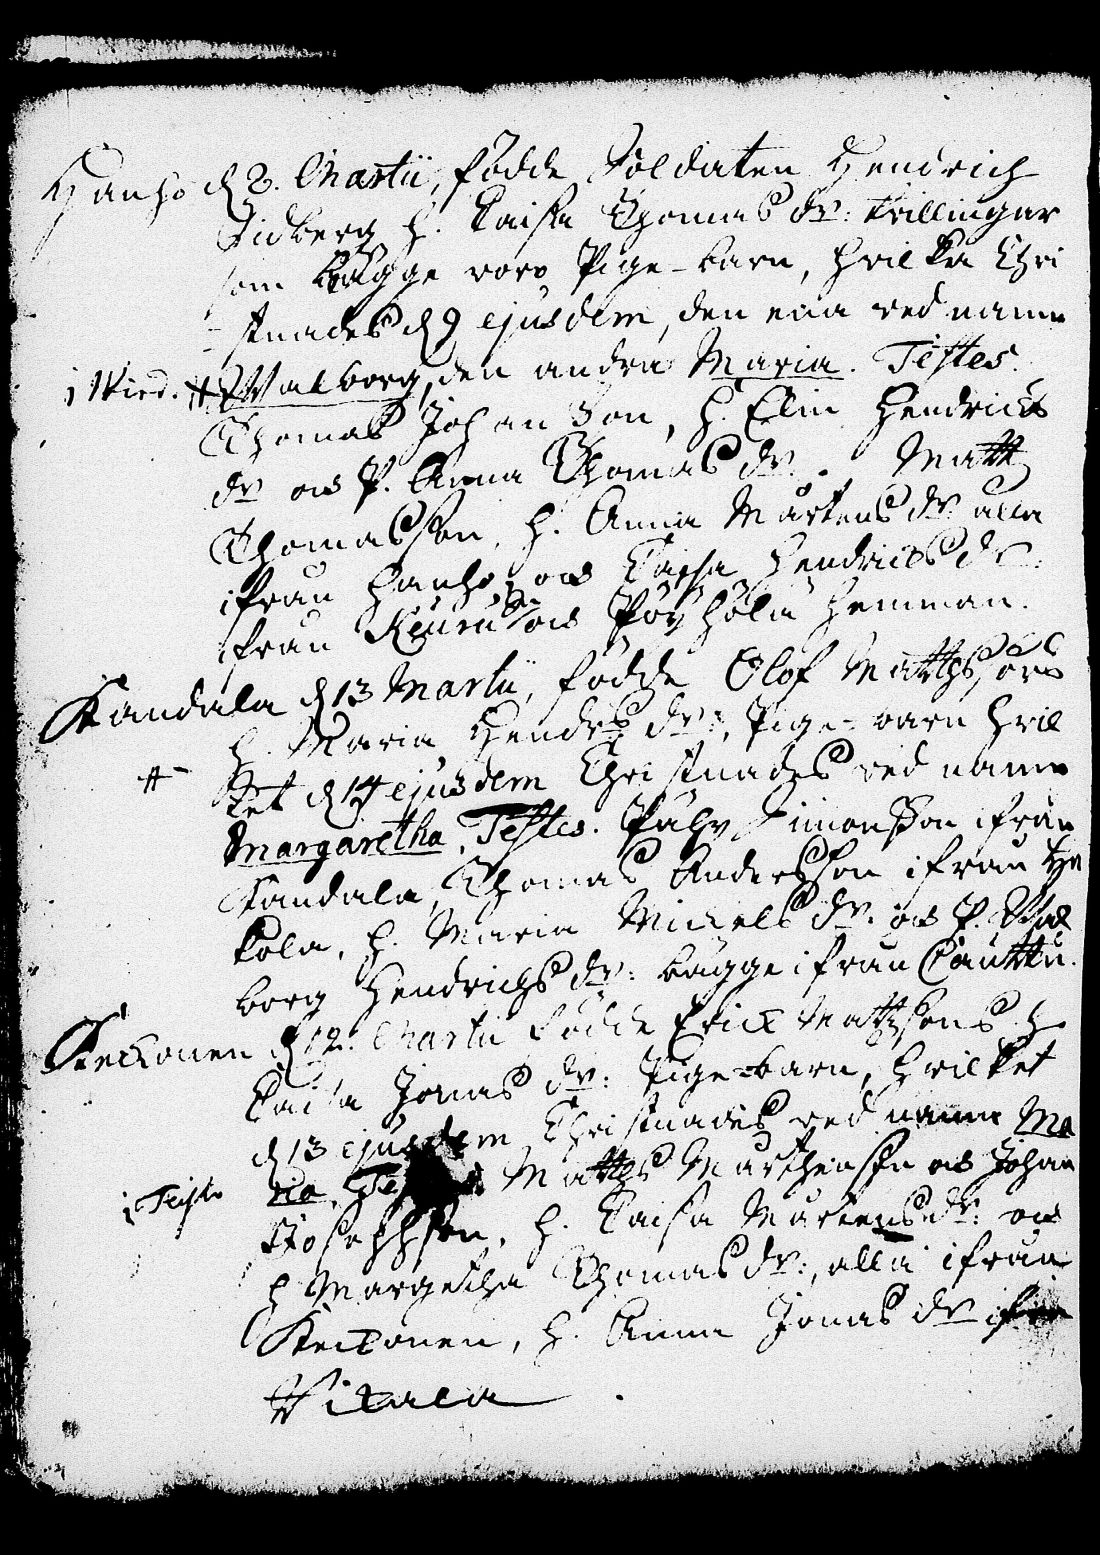 Hanho d 8. Martii, födde Soldaten Hendrich
Sidberg h. Caisa Thomas dr: twillingar
som bägge voro Pige-barn, hvilka Chri
stnades d 9 ejusdem, den ena ved namn
Walborg, den andra Maria. Testes.
Thomas Johanson, h. Elin Hendrichs
dr os P. Anna Thomas dr. Matts
Thomasson, h. Anna Mårtens dr alla
ifrån Hanho, os Caisa Hendrichs dr:
ifrån Keuru os Pöyhölä Hemman.
Kandala d 13 Martii, födde Olof Mattssons
h. Maria Hendrs dr:, Pige-barn hvil
ket d 14 ejusdem Christnades ved namn
Margaretha. Testes. Påhv Simonson ifrån
Kandala, Thomas Andersson ifrån
kola, h. Maria Michels dr: os P. Wal
borg Hendrichs dr: bägge ifrån
Keckonen d 12. Martii födde Erick Mattssons h
Caisa Jonas dr: Pige-barn, hvilket
d 13 ejusdem Christnades ved namn Ma
ria, Testes Matts Marthensn os Johan
Josephson, h. Caisa Mårtens dr: os
h Margetha Thomas dr:, alla ifrån
Keckonen, h. Anna Jonas dr ifrån